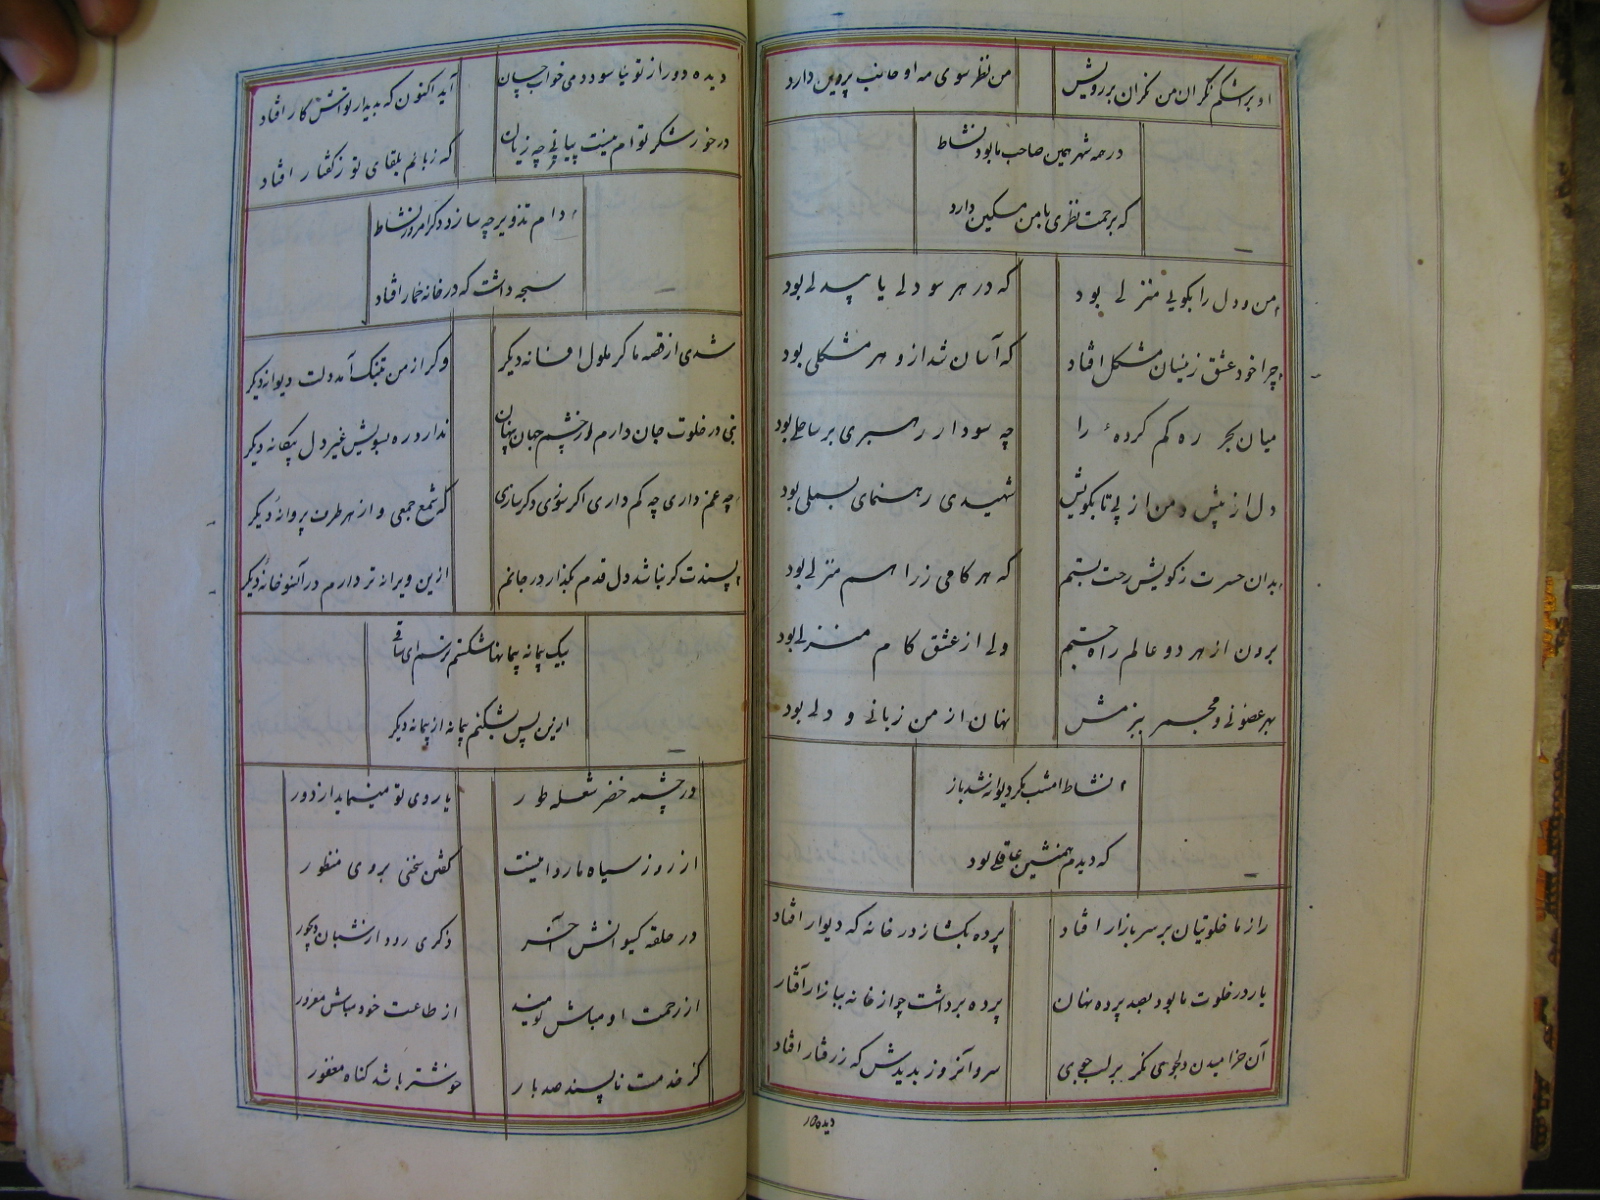 او بر اشکم نگران من نگران بر رویش
من نظر سوی مه او جانب پروین دارد
در همه شهر همین صاحب ما بود نشاط
که برحمت نظری با من مسکین دارد
من و دل را بکویی منزلی بود
که در هر سو دلی پا بدلی بود
چرا خود عشق زینسان مشکل افتاد
که آسان شد از و هر مشکلی بود
میان بحر ره گم کردهٔ را
چه سود ار رهبری بر ساحلی بود
دل از پیش و من از پی تا بکویش
شهیدی رهنمای بسملی بود
بدان حسرت ز کویش رخت بستم
که هر گامی ز راهم منزلی بود
برون از هر دو عالم راه جستم
ولی از عشق گام منزلی بود
بهر عضوی و مجمر ببزمش
نهان از من زبانی و دلی بود
نشاط امشب مگر دیوانه شد باز
که دیدم همنشین عاقلی بود
راز ما خلوتیان بر سر بازار افتاد
پرده بگشا ز در خانه که دیوار افتاد
یار در خلوت ما بود بصد پرده نهان
پرده برداشت چو از خانه ببازار افتاد
آن خرامیدن دلجوی نگر بر لب جوی
سرو آنروز بدیدش که ز رفتار افتاد
دیده دور
دیده دور از تو نیاسود دمی خواب چسان
آید اکنون که بدیدار تواش کار افتاد
در خور شکر توام نیست بیانی چه زیان
که زبانم بلقای تو ز گفتار افتاد
دام تزویر چه سازد دگر امروز نشاط
سبحه داشت که در خانه خمار افتاد
شدی از قصه ما گر ملول افسانه دیگر
و گر از من بتنگ آمد دلت دیوانه دیگر
بتی در خلوت جان دارم از چشم جهان پنهان
ندارد ره بسویش غیر دل بیگانه دیگر
چه غم داری چه کم داری اگر سوزی و گر سازی
که شمع جمعی و از هر طرف پروانهٔ دیگر
پسندت گر نباشد دل قدم بگذار در جانم
ازین ویرانه تر دارم در آنسو خانهٔ دیگر
بیک پیمانه پیمانها شکستم ترسم ای ساقی
ازین پس بشکنم پیمانه از پیمانه دیگر
در چشمه خضر شعله طور
یا روی تو مینماید از دور
از روز سیاه ما روا نیست
گفتن سخنی بروی منظور
در حلقه گیسوانش آخر
ذکری رود از شبان دیجور
از رحمت او مباش نومید
از طاعت خود مباش مغرور
کز خدمت ناپسند صد بار
خوشتر باشد گناه مغفور